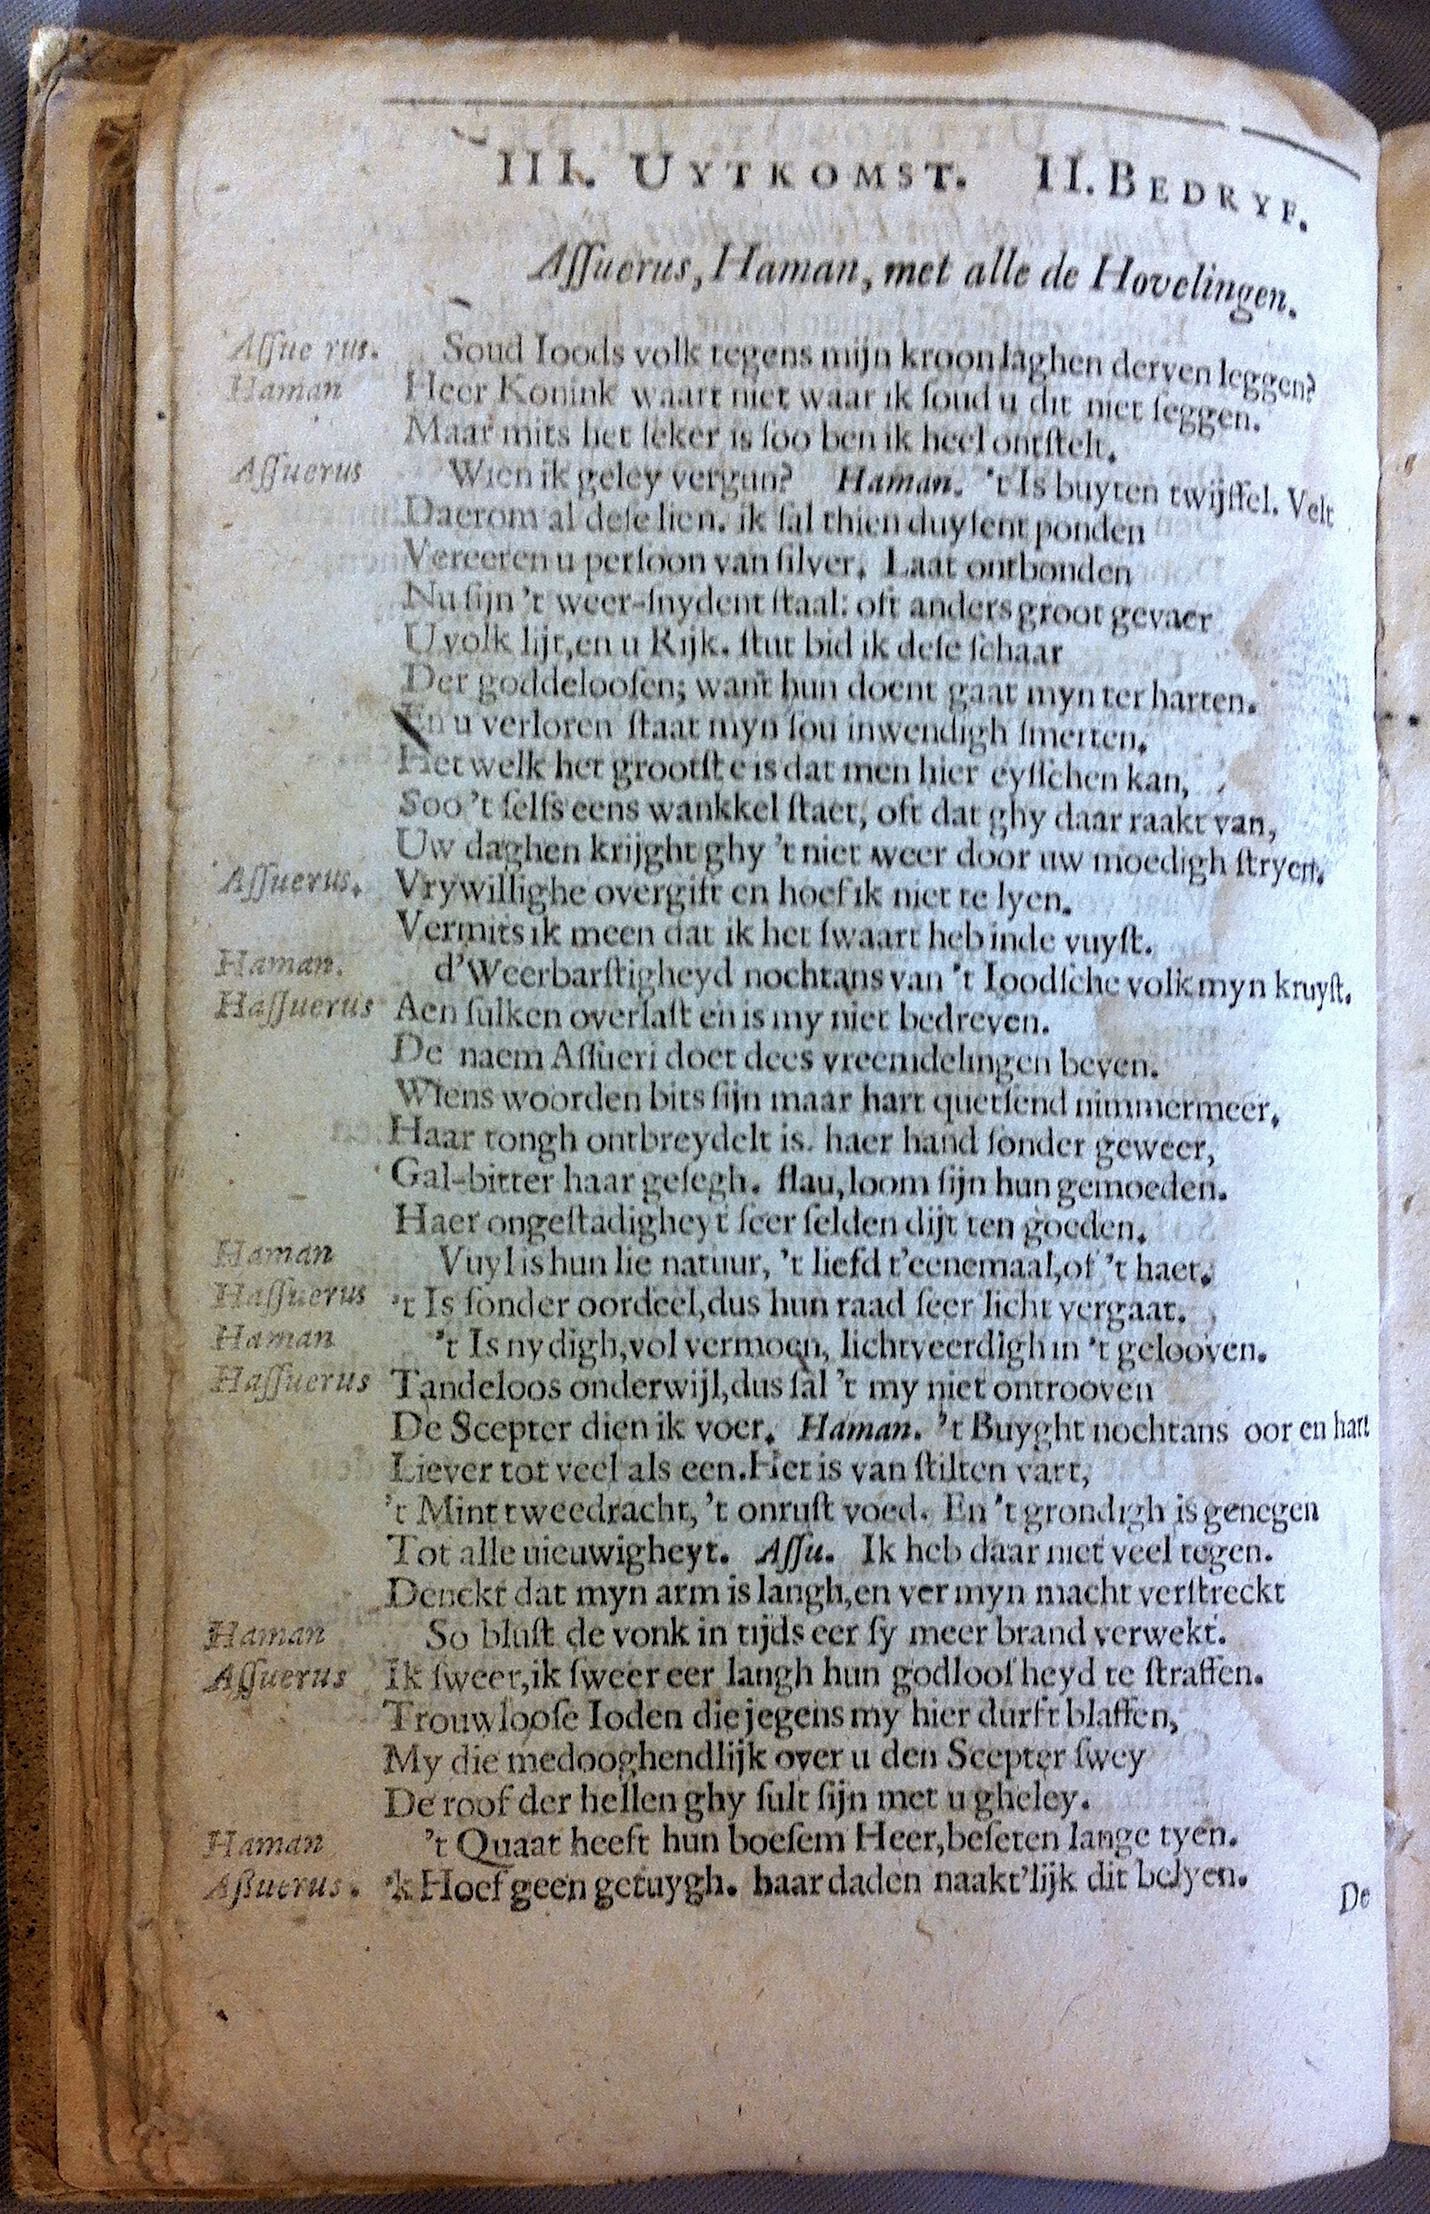 III. UYTKOMST. II. BEDRYF.
Aſſuerus, Haman, met alle de Hovelingen.
Aſſue rus. Soud Ioods volk tegens mijn kroon laghen derven leggen?
Haman Heer Konink waart niet waar ik ſoud u dit niet ſeggen.
Maar mits het ſeker is ſoo ben ik heel ontſtelt.
Aſſuerus Wien ik geley vergun? Haman. 't Is buyten twijffel. Velt
Daerom al deſe lien. ik ſal thien duyſent ponden
Vereeren u perſoon van ſilver. Laat ontbonden
Nu ſijn 't weer-ſnydent ſtaal: oft anders groot gevaer
U volk lijt, en u Rijk. ſtut bid ik deſe ſchaar
Der goddelooſen; want hun doent gaat myn ter harten.
En u verloren ſtaat myn ſou inwendigh ſmerten.
Het welk het grootſte is dat men hier eyſſchen kan,
Soo 't ſelfs eens wankkel ſtaet, oft dat ghy daar raakt van,
Uw daghen krijght ghy 't niet weer door uw moedigh ſtryen.
Aſſuerus. Vrywillighe overgift en hoef ik niet te lyen.
Vermits ik meen dat ik het ſwaart heb inde vuyſt.
Haman. d'Weerbarſtigheyd nochtans van 't Ioodſche volk myn kruyſt.
Haſſuerus Aen ſulken overlaſt en is my niet bedreven.
De naem Aſſueri doet dees vreemdelingen beven.
Wiens woorden bits ſijn maar hart quetſend nimmermeer.
Haar tongh ontbreydelt is. haer hand ſonder geweer,
Gal-bitter haar geſegh. ſlau, loom ſijn hun gemoeden.
Haer ongeſtadigheyt ſeer ſelden dijt ten goeden.
Haman Vuyl is hun lie natuur, 't liefd t'eenemaal, of 't haet.
Haſſuerus 't Is ſonder oordeel, dus hun raad ſeer licht vergaat.
Haman 't Is nydigh, vol vermoen, lichtveerdigh in 't gelooven.
Haſſuerus Tandeloos onderwijl, dus ſal 't my niet ontrooven
De Scepter dien ik voer. Haman. 't Buyght nochtans oor en hart
Liever tot veel als een. Het is van ſtilten vart,
't Mint tweedracht, 't onruſt voed. En 't grondigh is genegen
Tot alle nieuwigheyt. Aſſu. Ik heb daar niet veel tegen.
Denckt dat myn arm is langh, en ver myn macht verſtreckt
Haman So bluſt de vonk in tijds eer ſy meer brand verwekt.
Aſſuerus Ik ſweer, ik ſweer eer langh hun godloofheyd te ſtraffen.
Trouwlooſe Ioden die jegens my hier durft blaffen,
My die medooghendlijk over u den Scepter ſwey
De roof der hellen ghy ſult ſijn met u gheley.
Haman 't Quaat heeft hun boeſem Heer, beſeten lange tyen.
Aßuerus. 'k Hoef geen getuygh. haar daden naakt'lijk dit belyen.
De